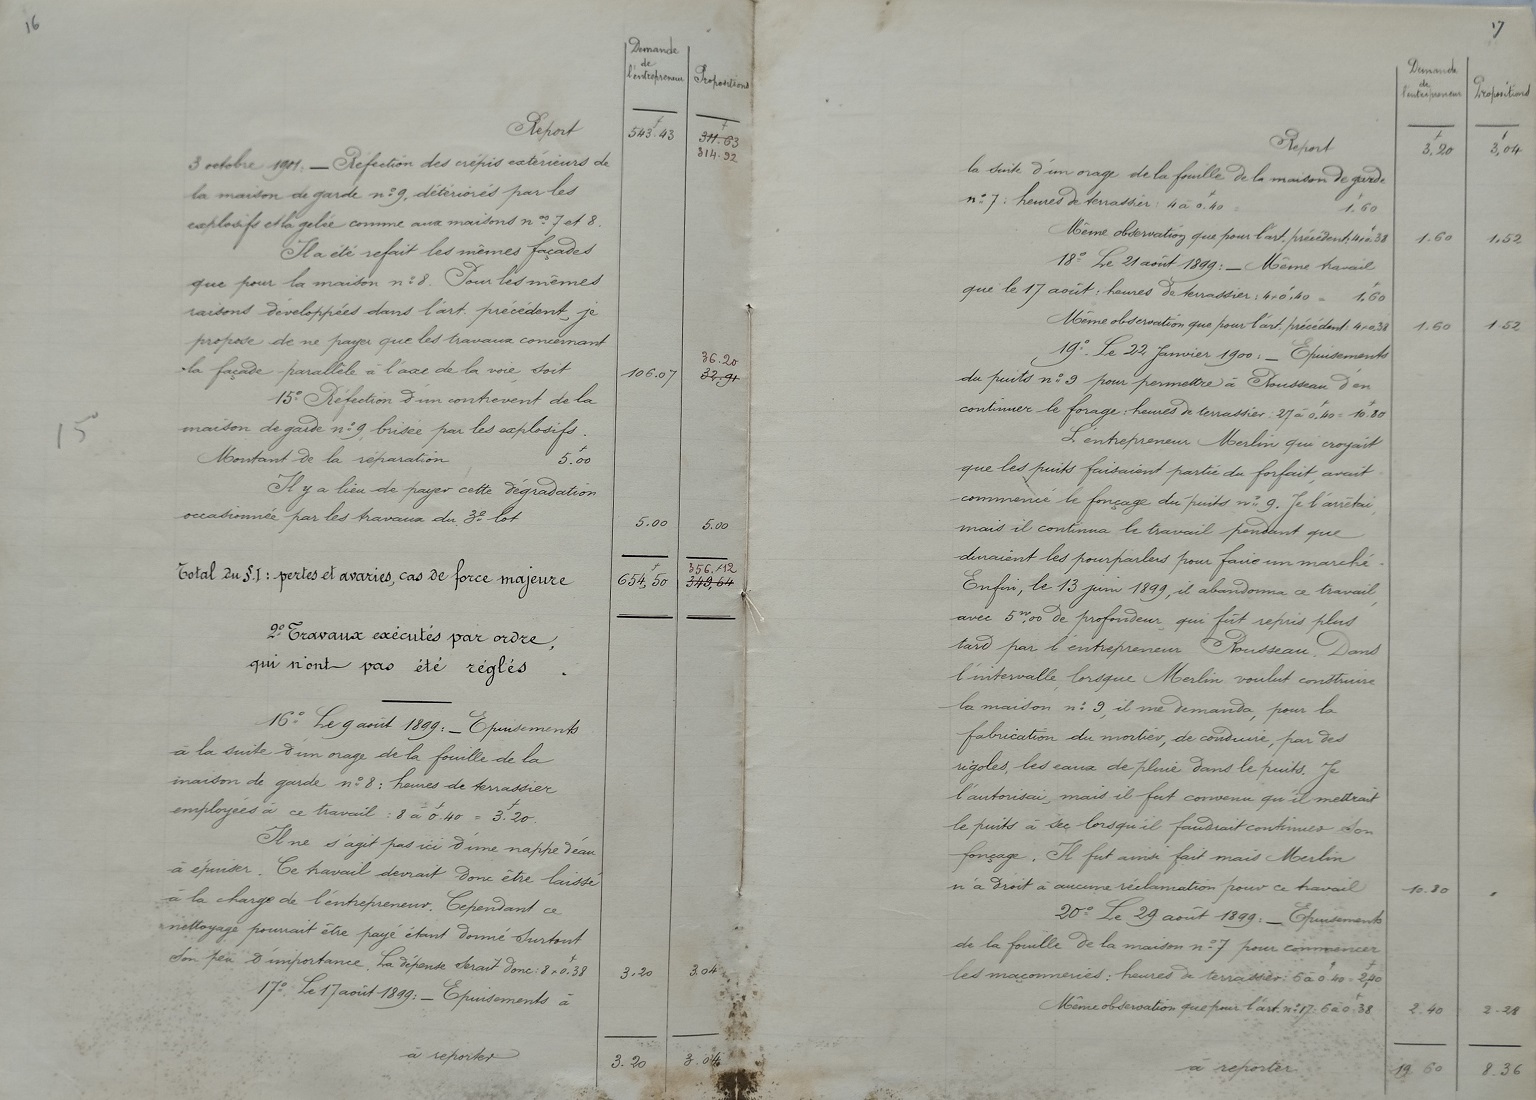 16
Demande
de
l'entrepreneur
Propositions
Report
543f.43
311.63
314.92
3 octobre 1901. — Réfection des crépis extérieurs de
la maison de garde n° 9, détériorés par les
explosifs et la gelée comme aux maisons nos 7 et 8.
Il a été refait les mêmes façades
que pour la maison n° 8. Pour les mêmes
raisons développées dans l'art. précédent, je
propose de ne payer que les travaux concernant
la façade parallèle à l'axe de la voie soit
106.07
36.20
32.91
15° Réfection d'un contrevent de la
maison de garde n° 9, brisée par les explosifs.
15°
Montant de la réparation 5f.00
Il y a lieu de payer cette dégradation
occasionnée par les travaux du 3e lot
5.00
5.00
Total du §.I : pertes et avaries, cas de force majeure
654f,50
356.12
349,64
2° Travaux exécutés par ordre,
qui n'ont pas été réglés.
16° Le 9 août 1899: — Epuisements
à la suite d'un orage de la fouille de la
maison de garde n° 8 ; heures de terrassier
employées à ce travail : 8 à 0f.40 = 3f.20.
Il ne s'agit pas ici d'une nappe d'eau
à épuiser. Ce travail devrait donc être laissé
à la charge de l'entrepreneur. Cependant ce
nettoyage pourrait être payé étant donné surtout
son peu d'importance. La dépense serait donc : 8 à 0f.38
3.20
3.04
17° Le 17 août 1899: — Epuisements à
à reporter
3.20
3.04
17
Demande
de
l'entrepreneur
Propositions
Report
3f,20
3f,04
la suite d'un orage de la fouille de la maison de garde
n° 7 : heures de terrassier : 4 à 0f.40 = 1f.60
Même observation que pour l'art. précédent; 4 à 0f.38
1.60
1.52
18° Le 21 août 1899: — Même travail
que le 17 août : heures de terrassier : 4 à 0f.40 = 1f.60
Même observation que pour l'art. précédent: 4 à 0.38
1.60
1.52
19° Le 22 Janvier 1900: — Epuisements
du puits n° 9 pour permettre à Rousseau d'en
continuer le forage : heures de terrassier : 27 à 0f,40 = 10f.80
L'entrepreneur Merlin qui croyait
que les puits faisaient partie du forfait, avait
commencé le fonçage du puits n° 9. Je l'arrêtai,
mais il continua le travail pendant que
duraient les pourparlers pour faire un marché.
Enfin, le 13 juin 1899, il abandonna ce travail,
avec 5m,00 de profondeur, qui fût repris plus
tard par l'entrepreneur Rousseau. Dans
l'intervalle, lorsque Merlin voulut construire
la maison n° 9, il me demanda, pour la
fabrication du mortier, de conduire, par des
rigoles, les eaux de pluie dans le puits. Je
l'autorisai, mais il fut convenu qu'il mettrait
le puits à sec lorsqu'il faudrait continuer son
fonçage. Il fut ainsi fait mais Merlin
n'a droit à aucune réclamation pour ce travail
10.80
"
20° Le 29 août 1899: — Epuisements
de la fouille de la maison n° 7 pour commencer
les maçonneries : heures de terrassier : 6 à 0f.40 = 2f,40
Même observation que pour l'art. n° 17 6 à 0f.38
2.40
2.28
à reporter
19.60
8.36